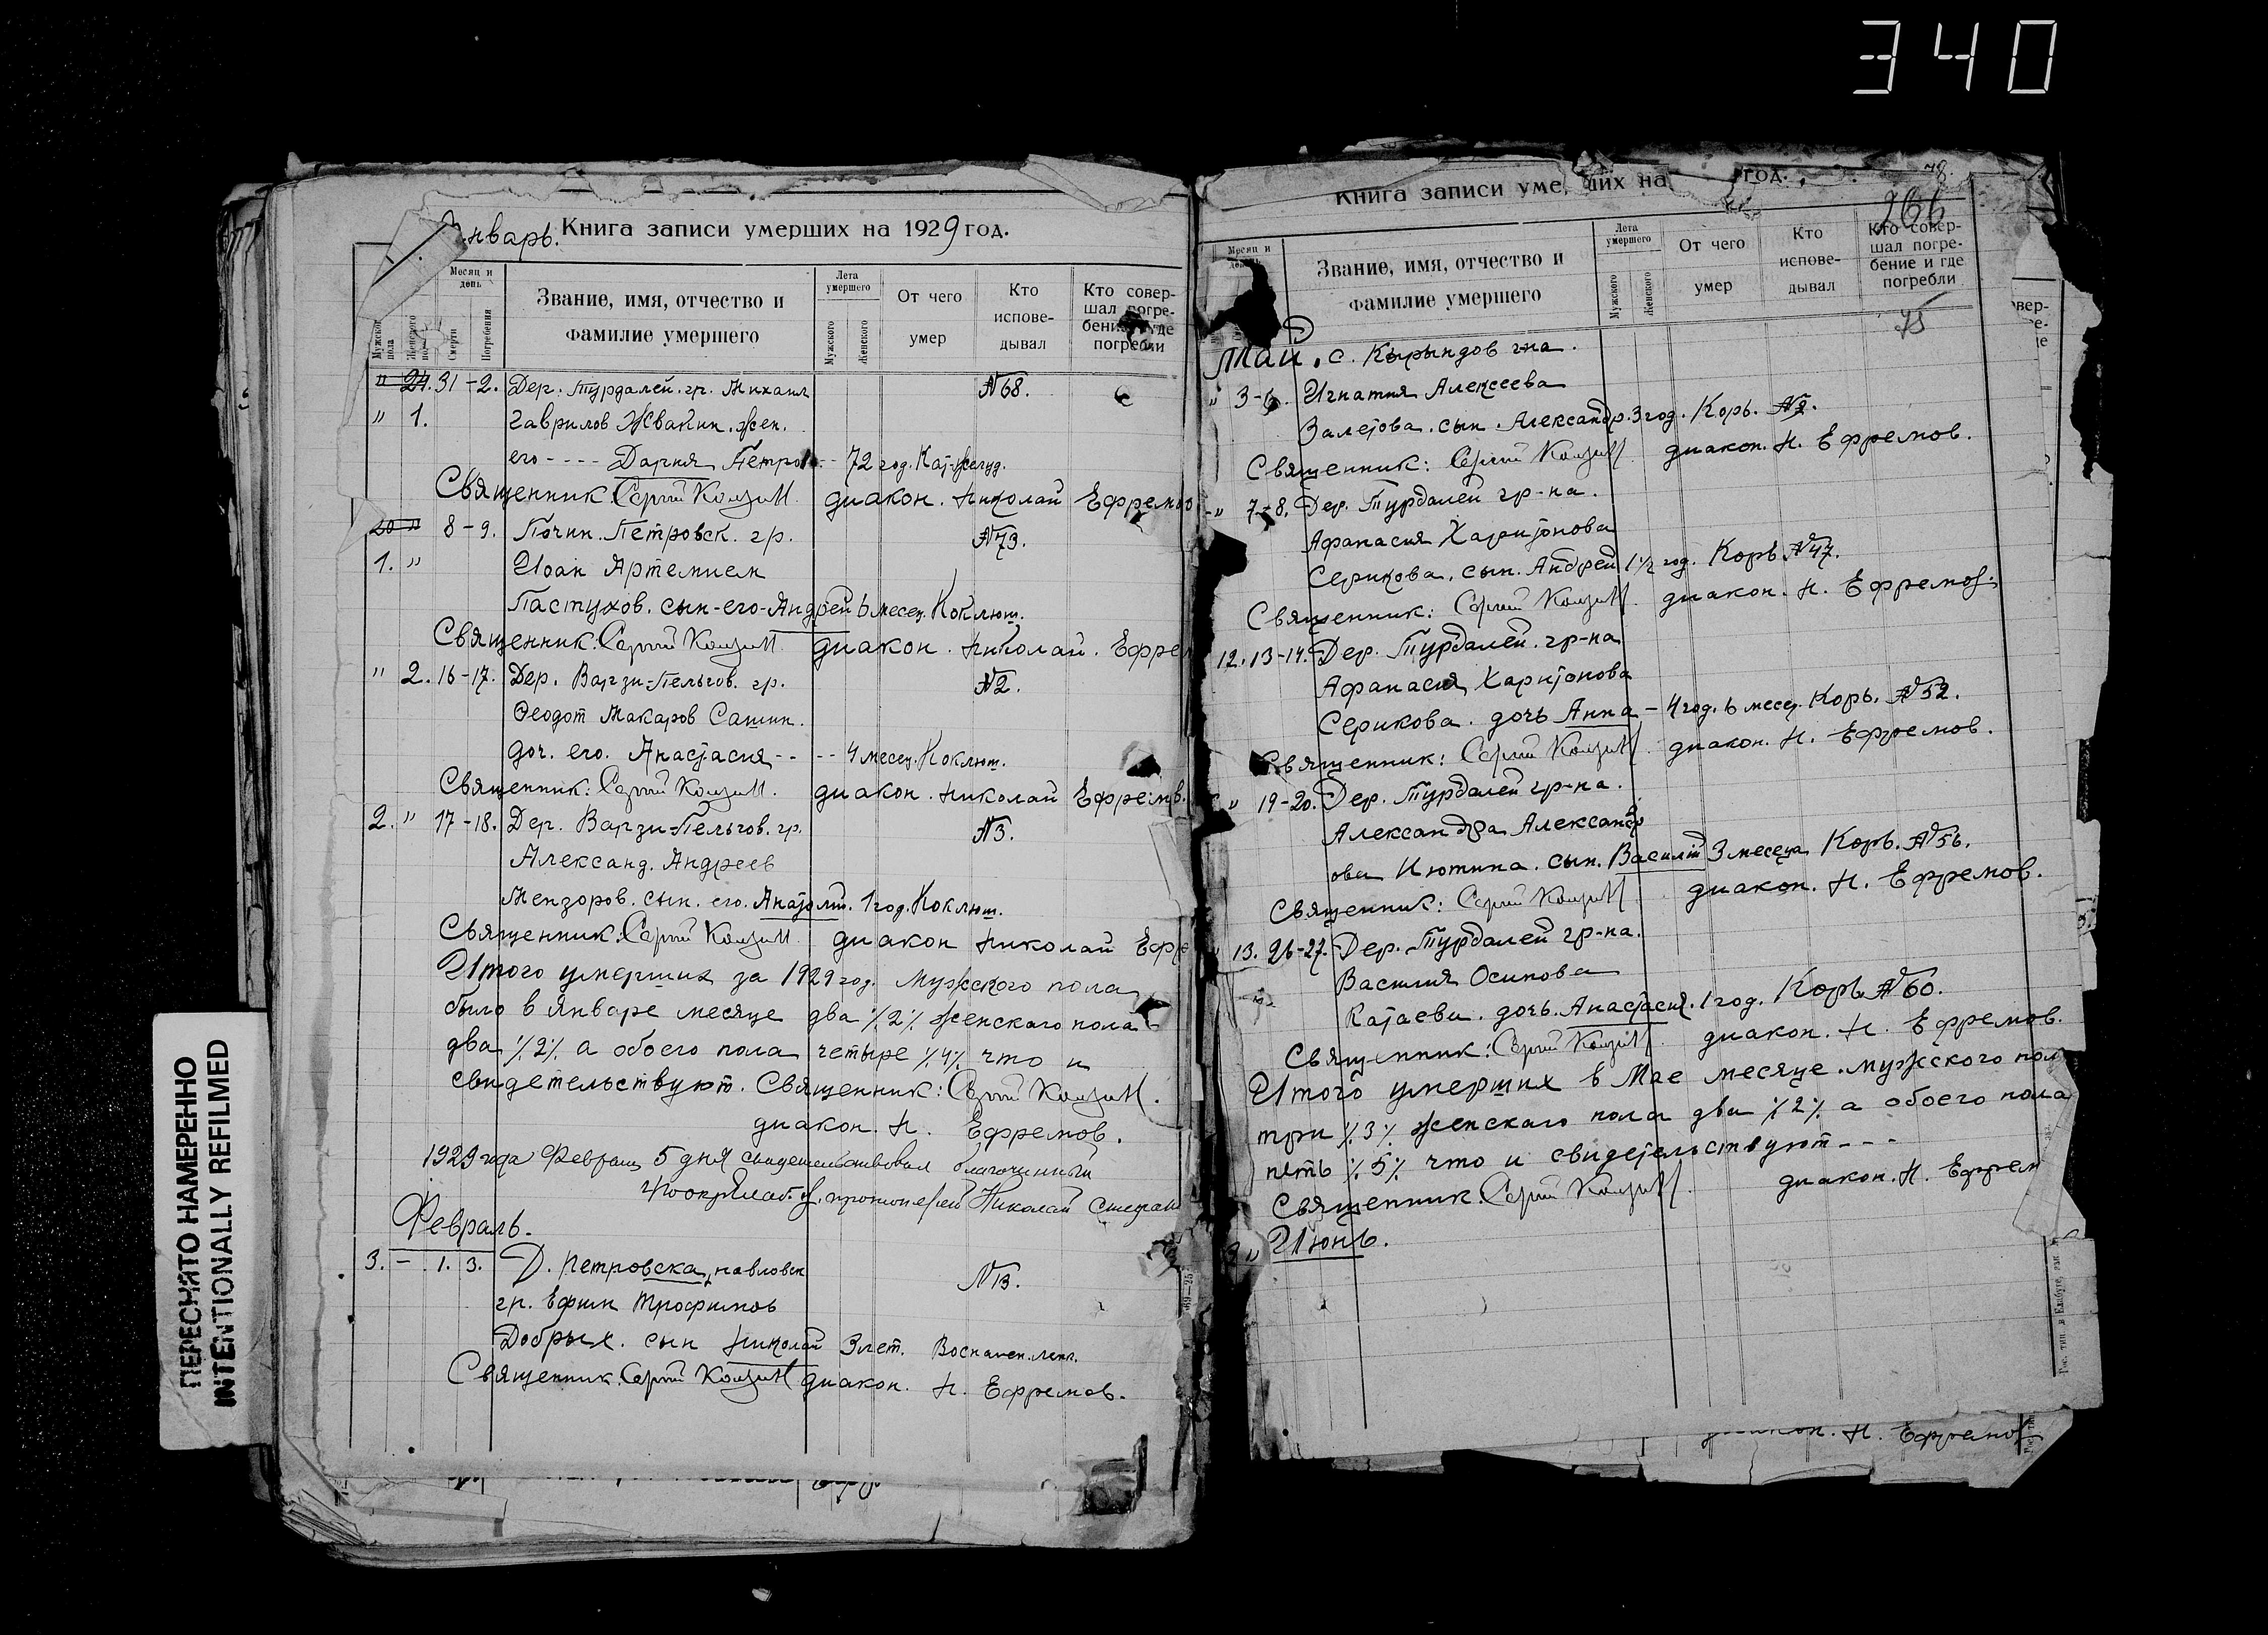 340
ПЕРЕСНЯТО НАМЕРЕННО
INTENTIONALLY REFILMED
Январь. Книга записи умерших на 1929 год.
Мужского пола
Женского пола
Месяц и день
Смерти
Погребения
Звание, имя, отчество и фамилие умершего
Лета умершего
Мужского
Женского
От чего умер
Кто исповедывал
Кто совершал погребение и где погребли
" 24. 31-2. Дер. Турдалей. гр. Михаил №68.
" 1. Гаврилов Жвакин. жен.
его - - - - Дария Петро - - 72 год. Кат. желуд.
Священник: Сергий диакон. Николай Ефремов
20 " 8-9. Почин. Петровск. гр. №73.
1. " Иоан Артемием
Пастухов. сын-его-Андрей 6 месец. Коклюш.
Священник: Сергий диакон. Николай. Ефрем
" 2. 16-17. Дер. Варзи-Пельгов. гр. №2.
Феодот Макаров Сашин.
доч. его. Анастасия - - - - 4 месец. Коклюш.
Священник: Сергий диакон. Николай Ефремов.
2. " 17-18. Дер. Варзи-Пельгов. гр. №3.
Александ. Андреев
Мензоров. сын. его. Анатолий. 1 год. Коклюш.
Священник: Сергий диакон Николай Ефре
Итого умерших за 1929 год. мужского пола
было в январе месяце два ٪2٪ женскаго пола
два ٪2٪ а обоего пола четыре ٪4٪ что и
свидетельствуют. Священник: Сергий
диакон. Н. Ефремов.
1929 года Февраля 5 дня свидетельствовал благочинный
протоиерей Николай
Февраль.
3. - 1. 3. Д. Петровска, павловск №13.
гр. Ефим Трофимов
Добрых. сын Николай 3 лет. Воспален. легк.
Священник: Сергий диакон. Н. Ефремов.
Книга записи уме ших на год.
78.
266
Месяц и день
Звание, имя, отчество и фамилие умершего
Лета умершего
Мужского
Женского
От чего умер
Кто исповедывал
Кто совершал погребение и где погребли
75
Май. с. Кырындов г-на.
" 3-6. Игнатия Алексеева
Залетова. сын. Александр. 3 год. Корь. №2.
Священник: Сергий диакон. Н. Ефремов.
" 7-8. Дер. Турдалей гр-на.
Афанасия Харитонова
Серикова. сын. Андрей 1 1/2 год. Корь №47.
Священник: Сергий диакон. Н. Ефремов.
12. 13-14. Дер. Турдалей. гр-на
Афанасия Харитонова
Серикова. дочь Анна - 4 год. 6 месец. Корь. №52.
Священник: Сергий диакон. Н. Ефремов.
" 19-20. Дер. Турдалей гр-на.
Александра Александр
ова Иютина. сын. Василий 3 месеца Корь. №56.
Священник: Сергий диакон. Н. Ефремов.
" 13. 26-27. Дер. Турдалей гр-на.
Василия Осипова
Катаева. дочь. Анастасия. 1 год. Корь №60.
Священник: Сергий диакон. Н. Ефремов.
Итого умерших в Мае месяце. мужского пол
три ٪3٪ женскаго пола два ٪2٪ а обоего пола
петь ٪5٪ что и свидетельствуют - - -
Священник. Сергий диакон. Н. Ефрем
Июнь.
диакон. Н. Ефремов